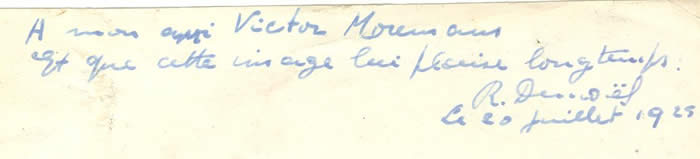 A mon ami Victor Moremans
et que cette image lui plaise longtemps.
R. Denoël
Le 20 juillet 1925